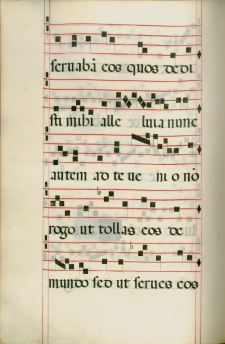 seruabā eos quos dedi
sti mihi alle luia nunc
autem ad te ue ni o nō
rogo ut tollas eos de
mundo sed ut serues eos